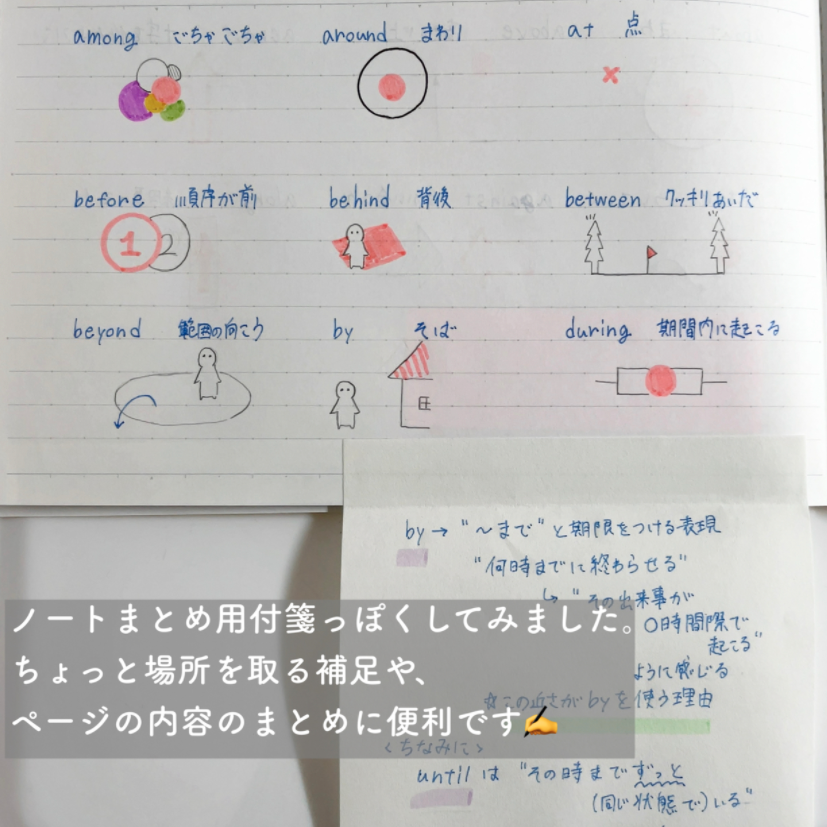 among ごちゃごちゃ
around まわり
at 点
before 順序が前
1 2
behind 背後
between クッキリあいだ
beyond 範囲の向こう
by そば
during 期間内に起こる
by→"〜まで"と期限をつける表現
"何時までに終わらせる"
↳"その出来事が
〇時間際で
起こる"
ように感じる
☆この近さがbyを使う理由
<ちなみに>
untilは"その時までずっと
(同じ状態で)いる"
ノートまとめ用付箋っぽくしてみました。
ちょっと場所を取る補足や、
ページの内容のまとめに便利です✍️